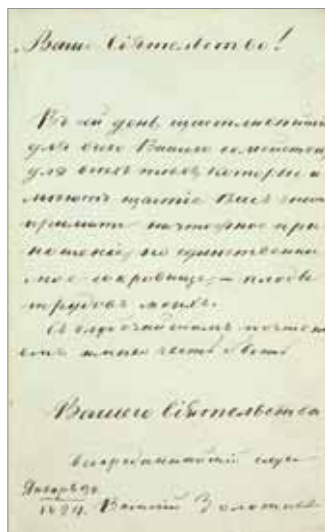 Ваше Сіятельство!
Въ сей день, щастливѣйшій
для всего Вашего семейства
для всѣхъ тѣхъ, которые и
мѣютъ щастіе Васъ знать
примите ничтожное при
ношеніе, но единственно
мое сокровище, — плоды
трудовъ моихъ.
Съ глубочайшимъ почтені
емъ имѣю честь быть
Вашего Сіятельства
всепреданнѣйшій слуга
Января
Василій Золотаев